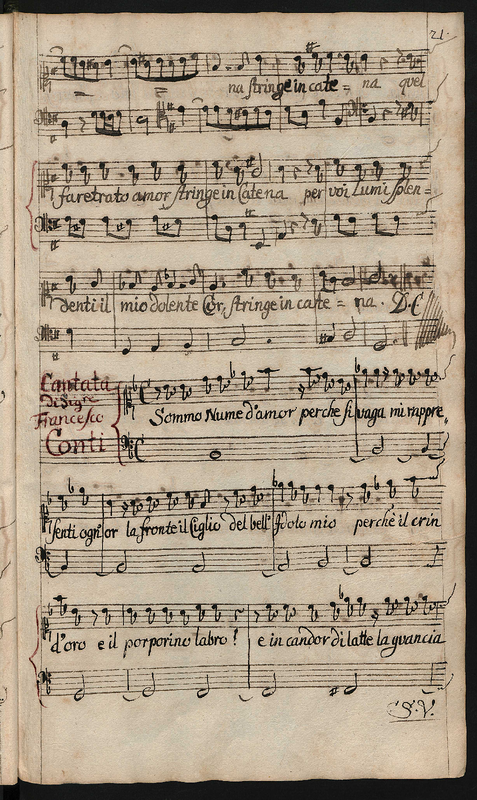 21.
na stringe in cate = na quel
faretrato amor stringe in Catena per voi Lumi splen=
denti il mio dolente Cor, stringe in cate = na. D.C
Cantata
di Sigre
Francesco
Conti
Sommo Nume d'amor perche si vaga mi rappre,
senti ogn'or la fronte il Ciglio del bell' Idolo mio perchè il crin
d'oro e il porporino labro! e in candor di latte la guancia
S.V.